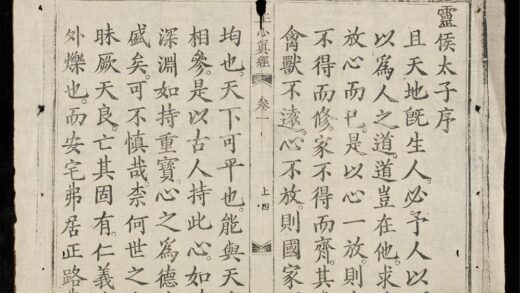 靈侯太子序
且天地旣生人。必予人以
以爲人之道。道豈在他。求
放心而已。是以心一放。則
不得而修。家不得而齊。其
禽獸不遠。心不放。則國家
正心真經 卷一 上四
均也。天下可平也。能與天
相參。是以古人持此心。如
深淵。如持重寶。心之爲德
盛矣。可不慎哉。柰何世之
昧厥天良。亡其固有。仁義
外爍也。而安宅弗居。正路